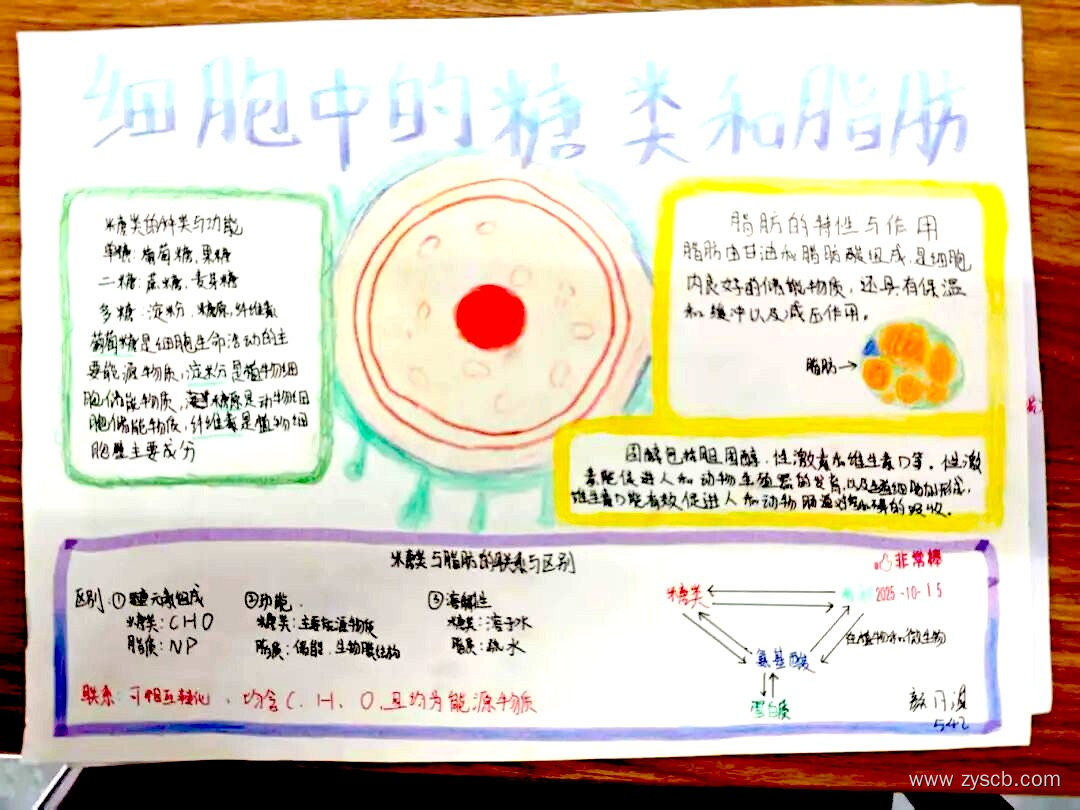 细胞中的糖类和脂肪
糖类的种类与功能
单糖:葡萄糖,果糖
二糖:蔗糖,麦芽糖
多糖:淀粉,糖原,纤维素
葡萄糖是细胞生命活动的主
要能源物质,淀粉是植物细
胞储能物质,糖原是动物细
胞储能物质,纤维素是植物细
胞壁主要成分
脂肪的特性与作用
脂肪由甘油和脂肪酸组成,是细胞
内良好的储能物质,还具有保温
和缓冲以及减压作用。
脂肪→
固醇包括胆固醇,性激素和维生素D等。性激
素能促进人和动物生殖器的发育,以及生殖细胞的形成,
维生素D能有效促进人和动物肠道对钙和磷的吸收。
糖类与脂肪的联系与区别
区别:①元素组成 ②功能. ③溶解性
糖类:CHO 糖类:主要能源物质 糖类:溶于水
脂质:NP 脂质:储能,生物膜结构 脂质:疏水
联系:可相互转化,均含C、H、O,且均为能源物质
非常棒
2025-10-15
糖类
在植物和微生物
氨基酸
蛋白质
542
www.zyscb.com